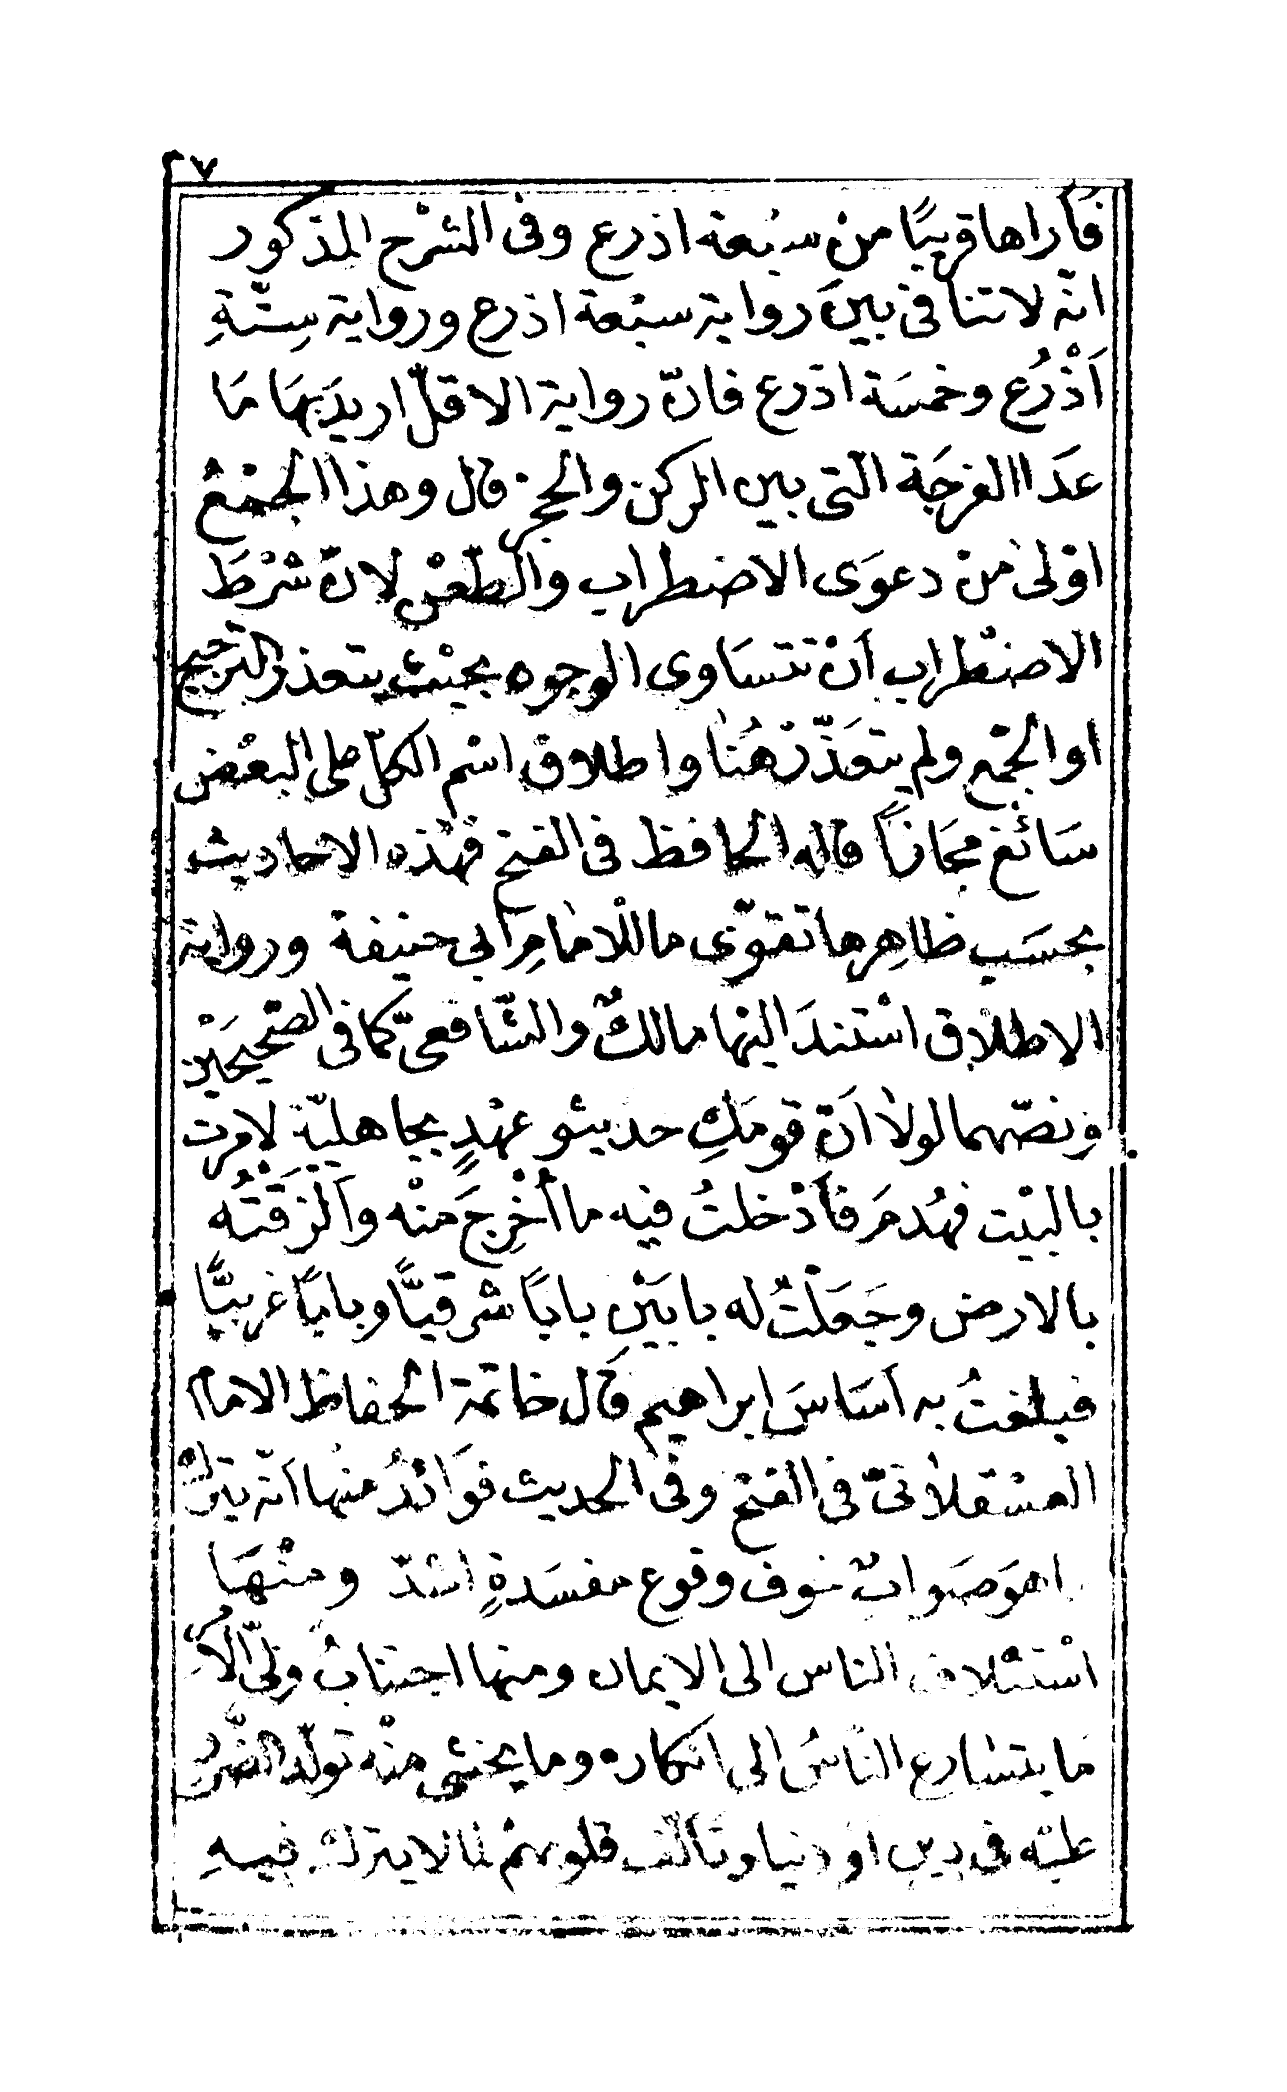 ٢٧
فأراها قريبًا منْ سبْعة اذرع وفى الشرْح المذكور
انّه لاتنا فى بينَ رواية سبْعة اذرع ورواية سِتّةِ
اَذْرُع وخمسَة اذرع فانّ رواية الاقلّ اريدَبهَا مَا
عدَا الفرجَة التى بين الركن والحجر قال وهذا الجمْعُ
اوْلى منْ دعوَى الاضطراب والطّعْن لانّ شرْطَ
الاضطراب اَنْ تتسَاوى الوجوه بحيْث يتعذر الترجيح
او الجمْع ولم يتعَذّرْ هُنا واطلاق اسْم الكلّ على البعْض
سَائغ مجَازاً قاله الحافظ فى الفتح فهْذه الاحاديث
بحسَب ظاهِرها تقوّى ما للامامِ ابى حنيفة ورواية
الاطلاق اسْتندَ اليْها مالكٌ والشّافعىّ كما فى الصّحيحَيْن
ونصّهما لولا اَنّ قومَكِ حديثو عهْدٍ بجاهليّة لامرت
بالبيْت فهُدمَ فأدْخلتُ فيه ما أُخْرِجَ منْه واَلزقْتُه
بالارض وجَعَلْتُ له بابَيْن باباً شرقيًّا وباباً غربيًّا
فبلغتُ به اَسَاسَ ابراهيم قال خاتمة الحفاظ الامام
العسْقلانىّ فى الفتح وفى الحديث فوَائدُ منْها اَنّه يترك
ما هوَ صَوابٌ خوف وقوع مفسَدةٍ اشدّ ومنْهَا
اسْتئلاف الناس الى الايمان ومنها اجتنابُ ولىّ الأمر
مَا يتسَارع النّاسُ الى انكاره وما يخشى منْه تولّد الضّرر
عليْه فى دين اوْ دنيا وتألّف قلوبهمْ لما لا يترك فيه